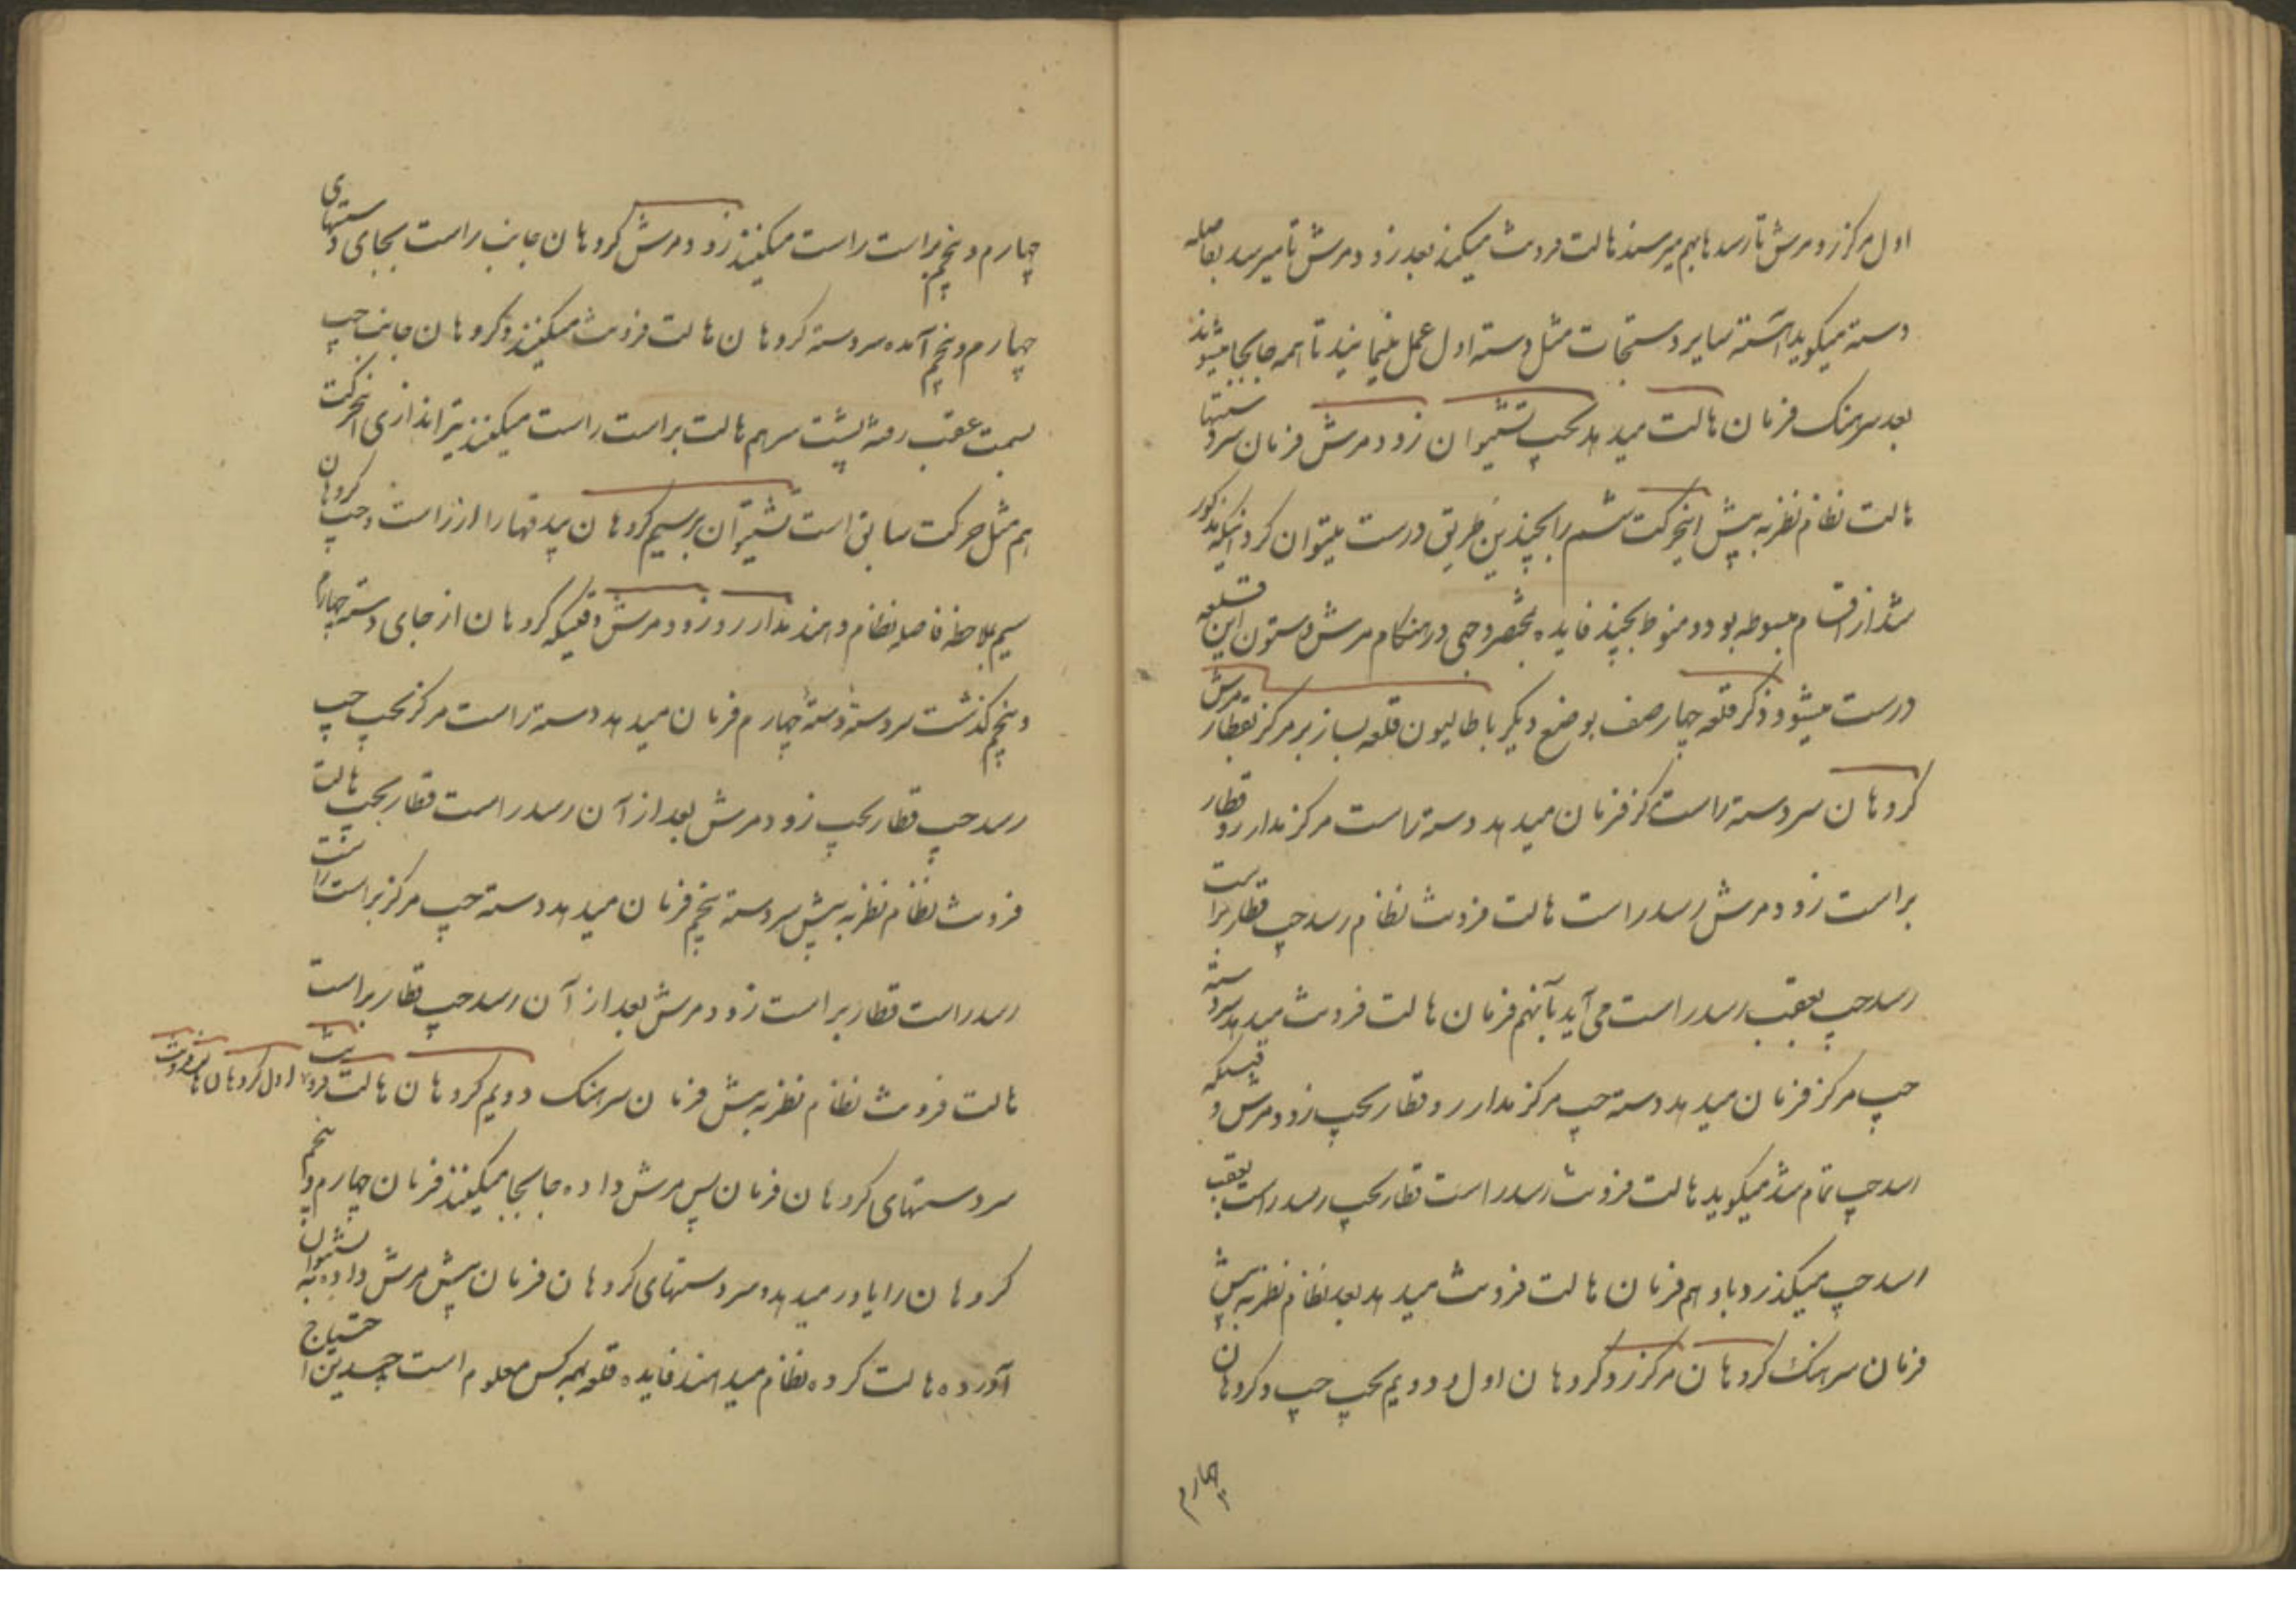 اول مرکز زود مرش تا رسدها بهم میرسند هالت فرونت میکند بعد زود مرش تا میرسد بفاصله
دسته میکوید آهسته سایر دستجات مثل دسته اول عمل مینمایند تا همه جابجا میشوند
بعد سرهنک فرمان هالت میدهد بحپ تشیوان زود مرش فرمان سردستها
هالت نظام نظر به پیش اینحرکت ششم را بچندین طریق درست میتوان کرد اینکه مذکور
شد از اقسام مبسوطه بود و منوط بچند فایده مختصر وجهی در هنکام مرش دستون این قلعه
درست میشود ذکر قلعه چهار صف بوضع دیکر باطالیون قلعه بساز بر مرکز بقطار مرش
کروهان سردسته راست مرکز فرمان میدهد دسته راست مرکز مدار رو قطار
براست زود مرش رسد راست هالت فرونت نظام رسد چپ قطار براست
رسد چپ بعقب رسد راست می آید بآنهم فرمان هالت فرونت میدهد سردسته
چپ مرکز فرمان میدهد دسته چپ مرکز مدار رو قطار بچپ زود مرش وقتیکه
رسد چپ تمام شد میکوید هالت فرونت رسد راست قطار بچپ رسد راست بعقب
رسد چپ میکذرد باو هم فرمان هالت فرونت میدهد بعد نظام نظر به پیش
فرمان سرهنک کروهان مرکز رو کروهان اول و دویم بچپ چپ و کروهان
چهارم
چهارم و پنجم براست راست میکنند زود مرش کروهان جانب راست بجای دستهای
چهارم و پنجم آمده سردسته کروهان هالت فرونت میکنند و کروهان جانب چپ
بسمت عقب رفته پشت سر هم هالت براست راست میکنند تیراندازی اینحرکت
هم مثل حرکت سابق است تشیوان برسیم کروهان بیدقها را از راست و چپ کروهان
سیم بملاحظه فاصله نظام دهند مدار رو زود مرش وقتیکه کروهان از جای دسته چهارم
و پنجم کذشت سردسته دسته چهارم فرمان میدهد دسته راست مرکز بحپ چپ
رسد چپ قطار بحپ زود مرش بعد از آن رسد راست قطار بحپ هالت
فرونت نظام نظر به پیش سردسته پنجم فرمان میدهد دسته چپ مرکز براست راست
رسد راست قطار براست زود مرش بعد از آن رسد چپ قطار براست
هالت فرونت نظام نظر به پیش فرمان سرهنک دویم کروهان هالت فرونت اول کروهان هالت فرونت
سردستهای کروهان فرمان پس مرش داده جابجا میکنند فرمان چهارم و پنجم
کروهان را یاور میدهد و سردستهای کروهان فرمان پیش مرش داده به تشیوان
آورده هالت کرده نظام میدهند فایده قلعه بهمه کس معلوم است چندین احتیاج